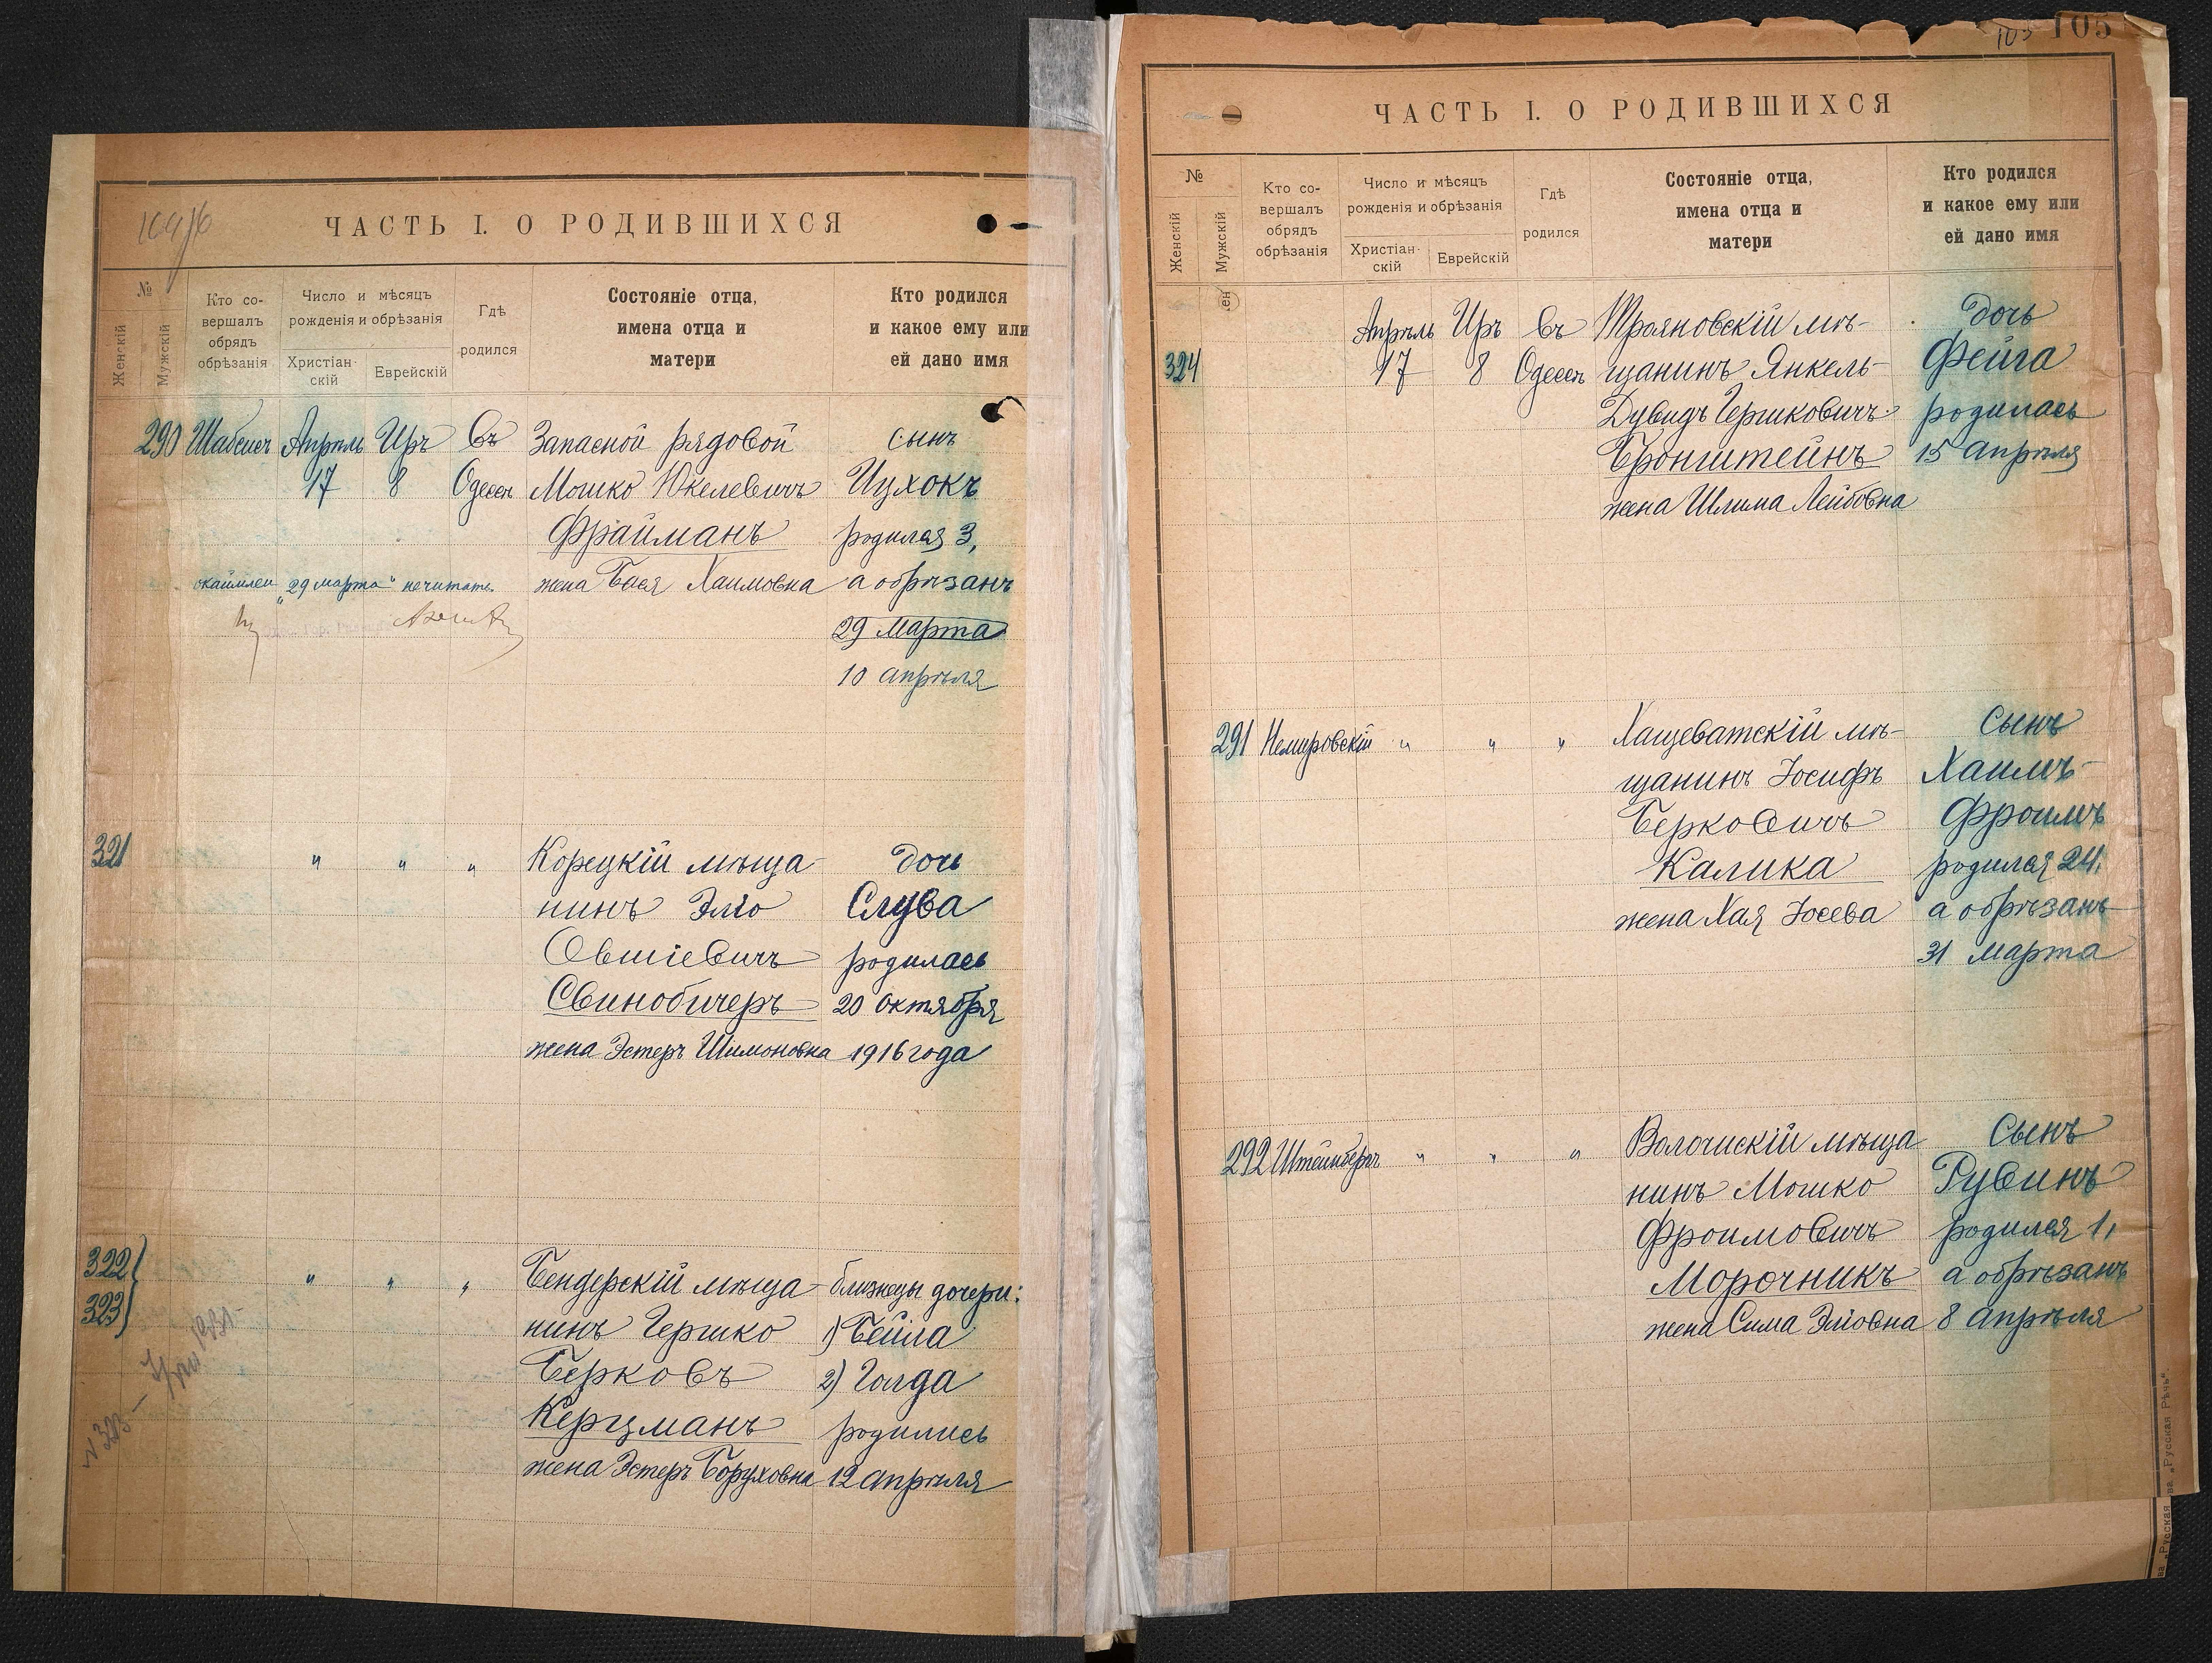 104/б
ЧАСТЬ I. О РОДИВШИХСЯ
№
Женскій
Мужскій
Кто со-
вершалъ
обрядъ
обрѣзанія
Число и мѣсяцъ
рожденія и обрѣзанія
Христіан-
скій
Еврейскій
Гдѣ
родился
Состояніе отца,
имена отца и
матери
Кто родился
и какое ему или
ей дано имя
290 Шабсисъ Апрѣль Иръ Въ Запасной рядовой сынъ
17 8 Одессѣ Мошко Юкелевичъ Ицхокъ
Фрайманъ родился 3,
жена Бася Хаимовна а обрѣзанъ
окаймлен „29 марта“ нечитать
29 Марта
10 апрѣля
321 " " " Корецкій мѣща- дочь
нинъ Эліо Слува
Овшіевичъ родилась
Свинобичеръ 20 октября
жена Эстеръ Шимоновна 1916 года
322 " " " Бендерскій мѣща- близнецы дочери:
323 нинъ Гершко 1) Бейла
Берковъ 2) Голда
Керцманъ родились
жена Эстеръ Боруховна 12 апрѣля
N 323 –
105 105
ЧАСТЬ I. О РОДИВШИХСЯ
№
Женскій
Мужскій
Кто со-
вершалъ
обрядъ
обрѣзанія
Число и мѣсяцъ
рожденія и обрѣзанія
Христіан-
скій
Еврейскій
Гдѣ
родился
Состояніе отца,
имена отца и
матери
Кто родился
и какое ему или
ей дано имя
Апрѣль Иръ Въ Трояновскій мѣ- дочь
324 17 8 Одессѣ щанинъ Янкель- Фейга
Дувидъ Гершковичъ родилась
Бронштейнъ 15 апрѣля
жена Шлима Лейбовна
291 Немировскій " " " Хащеватскій мѣ- Сынъ
щанинъ Іосифъ Хаимъ-
Берковичъ Фроимъ
Калика родился 24,
жена Хая Іосева а обрѣзанъ
31 Марта
292 Штейнбергъ " " " Волочискій мѣща- Сынъ
нинъ Мошко Рувинъ
Фроимовичъ родился 1,
Морочникъ а обрѣзанъ
жена Сима Эліовна 8 апрѣля
ва „Русская Рѣчь“.
ва „Русская